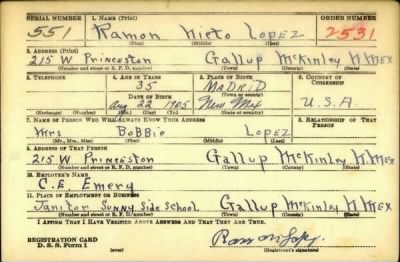 SERIAL NUMBER 1. NAME (Print) ORDER NUMBER
551 Ramon Nieto Lopez 2531
(First) (Middle) (Last)
2. ADDRESS (Print)
215 W Princeston Gallup McKinley N.MEX
(Number and street or R. F. D. number) (Town) (County) (State)
3. TELEPHONE 4. AGE IN YEARS 5. PLACE OF BIRTH 6. COUNTRY OF CITIZENSHIP
35 MADRID
DATE OF BIRTH (Town or county)
Aug 22 1905 New Mex U.S.A.
(Exchange) (Number) (Mo.) (Day) (Yr.) (State or country)
7. NAME OF PERSON WHO WILL ALWAYS KNOW YOUR ADDRESS 8. RELATIONSHIP OF THAT PERSON
Mrs Bobbie Lopez
(Mr., Mrs., Miss) (First) (Middle) (Last)
9. ADDRESS OF THAT PERSON
215 W Princeston Gallup McKinley N.MEX
(Number and street or R. F. D. number) (Town) (County) (State)
10. EMPLOYER'S NAME
C.E. Emery
11. PLACE OF EMPLOYMENT OR BUSINESS
Janitor Sunny Side School Gallup McKinley N.MEX
(Number and street or R. F. D. number) (Town) (County) (State)
I AFFIRM THAT I HAVE VERIFIED ABOVE ANSWERS AND THAT THEY ARE TRUE.
REGISTRATION CARD
D. S. S. Form 1 (over)
Ramon Lopez
(Registrant's signature)